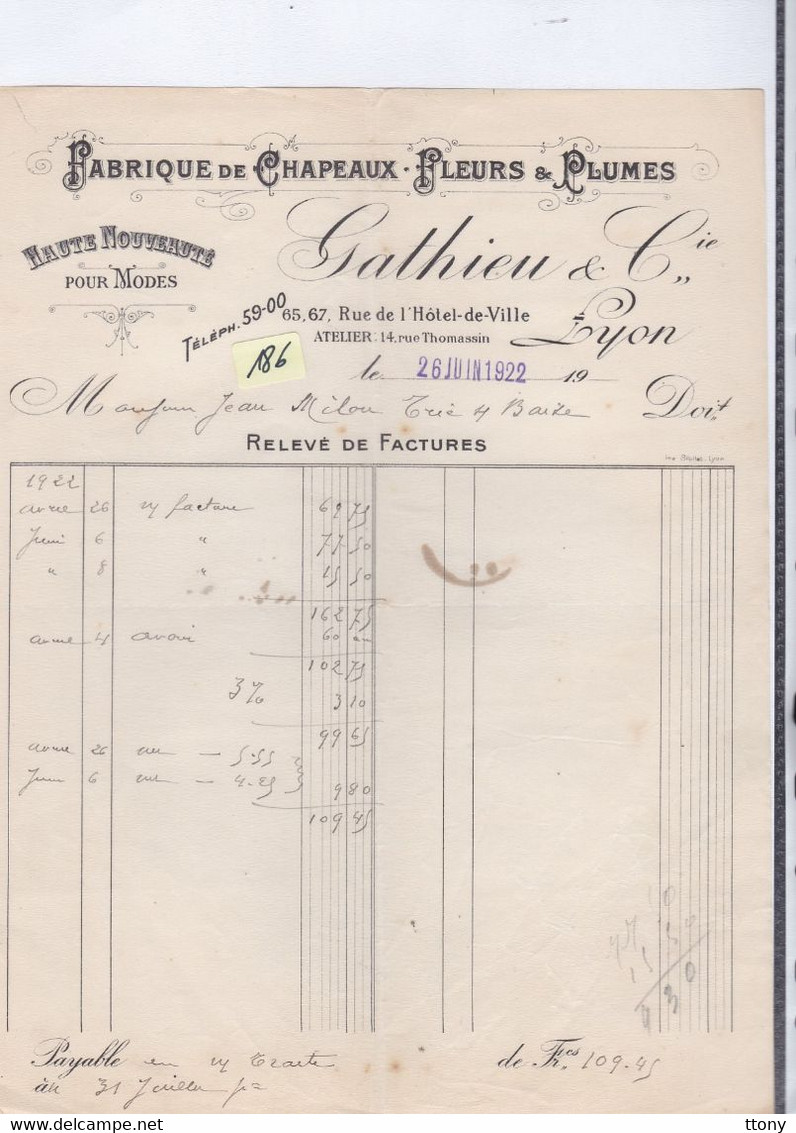 FABRIQUE DE CHAPEAUX · FLEURS & PLUMES
HAUTE NOUVEAUTÉ
POUR MODES
Gathieu & Cie
TÉLÉPH. 59-00
65, 67, Rue de l'Hôtel-de-Ville
ATELIER: 14, rue Thomassin
Lyon
186
le 26 JUIN 1922 19
Monsieur Jean Milou Trie s/ Baïze Doit
RELEVÉ DE FACTURES
1922
avril 26 n/ facture 69 75
Juin 6 " 77 50
" 8 " 15 50
162 75
avril 4 avoir 60
102 75
3% 3 10
99 65
avril 26 - 5.55
Juin 6 - 4.25 9 80
109 45
Payable en n/ Traite de Frcs 109.45
au 31 Juillet
ttony